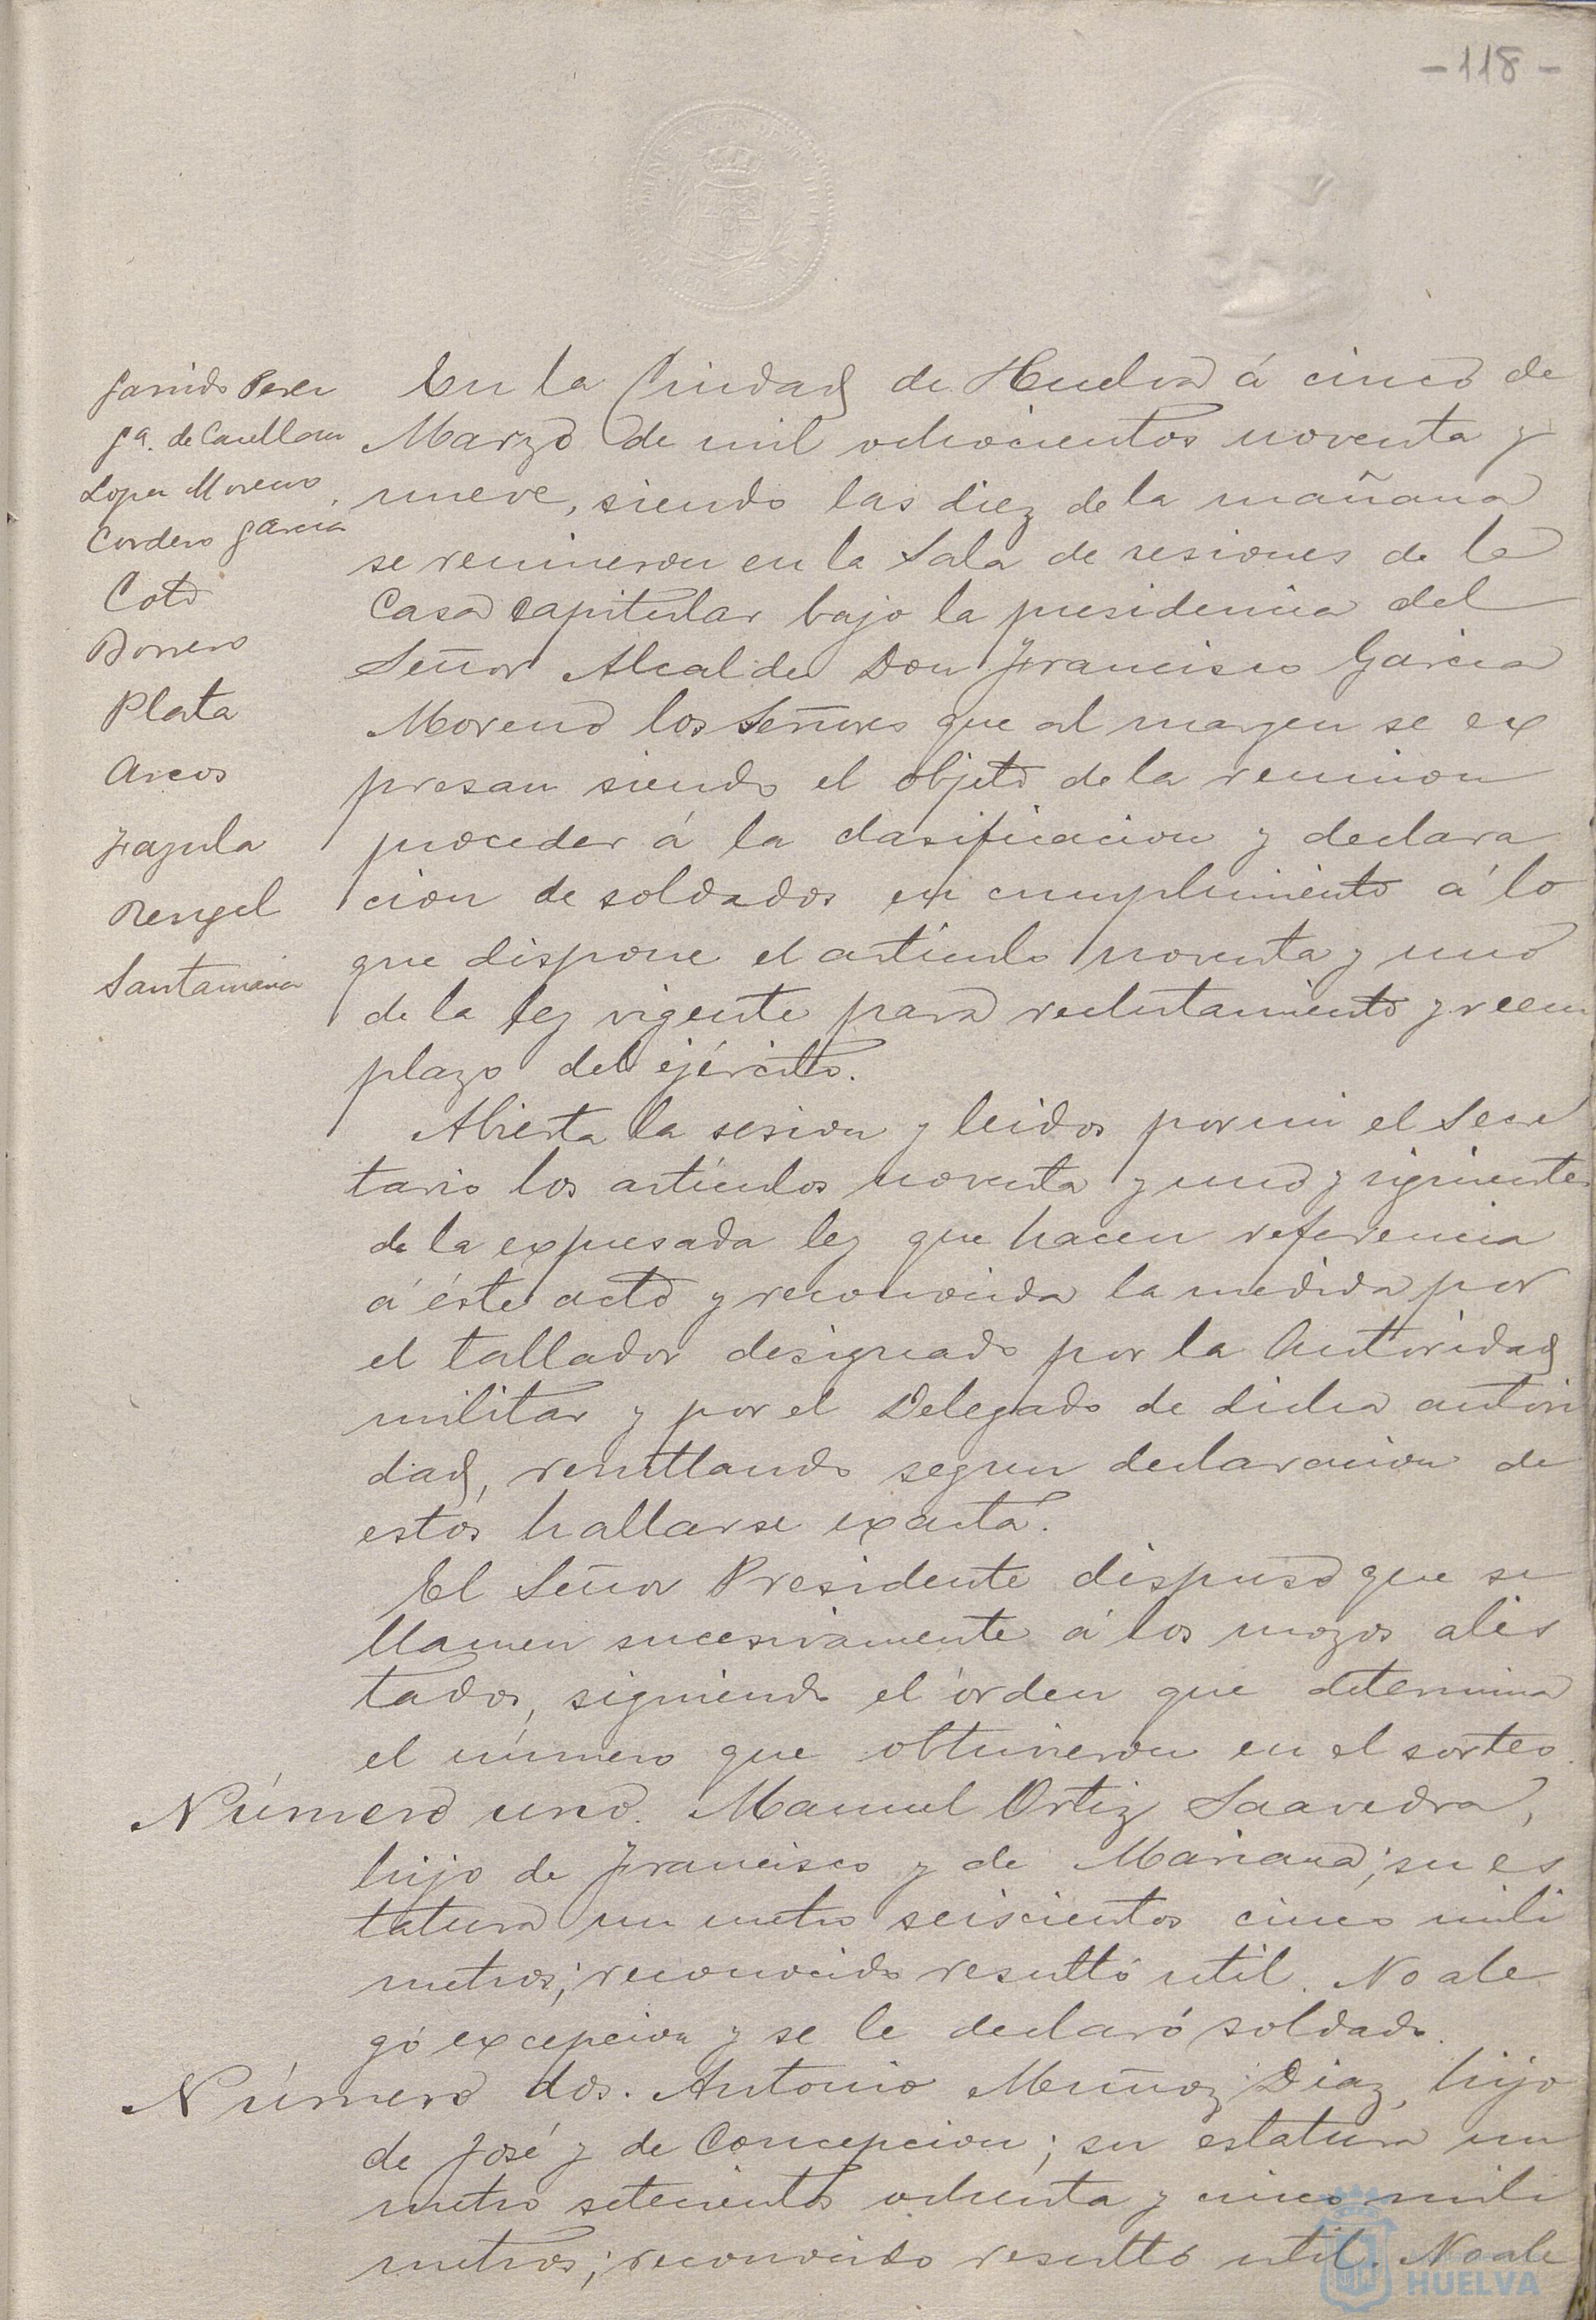 -118-
Garrido Perez
Gª. de Castellon
Lopez Moreno
Cordero Garcia
Coto
Borrero
Plata
Arcos
Fagula
Rengel
Santamaria
En la Ciudad de Huelva á cinco de
Marzo de mil ochocientos noventa y
nueve, siendo las diez de la mañana
se reunieron en la Sala de sesiones de la
Casa Capitular bajo la presidencia del
Señor Alcalde Don Francisco Garcia
Moreno los Señores que al margen se ex
presan siendo el objeto de la reunion
proceder á la clasificacion y declara
cion de soldados en cumplimiento á lo
que dispone el artículo noventa y uno
de la ley vigente para reclutamiento y reem
plazo del ejército.
Abierta la sesion y leidos por mi el Secre
tario los artículos noventa y uno y siguientes
de la expresada ley que hacen referencia
á éste acto y reconocida la medida por
el tallador designado por la Autoridad
militar y por el Delegado de dicha autori
dad, resultando segun declaracion de
estos hallarse exacta.
El Señor Presidente dispuso que se
llamen sucesivamente á los mozos alis
tados, siguiendo el órden que determina
el número que obtuvieron en el sorteo.
Número uno. Manuel Ortiz Saavedra,
hijo de Francisco y de Mariana; su es
tatura un metro seiscientos cinco mili
metros; reconocido resultó util. No ale
gó excepcion y se le declaró soldado.
Número dos. Antonio Muñoz Diaz, hijo
de José y de Concepcion; su estatura un
metro setecientos ochenta y cinco mili
metros; reconocido resultó util. No ale
HUELVA